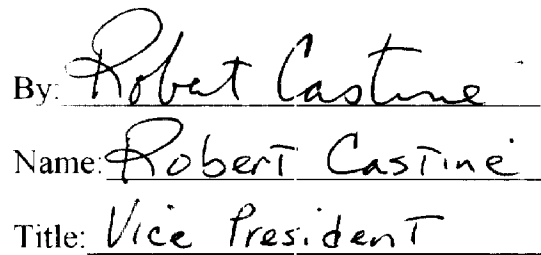 By: Robert Castine
Name: Robert Castine
Title: Vice President